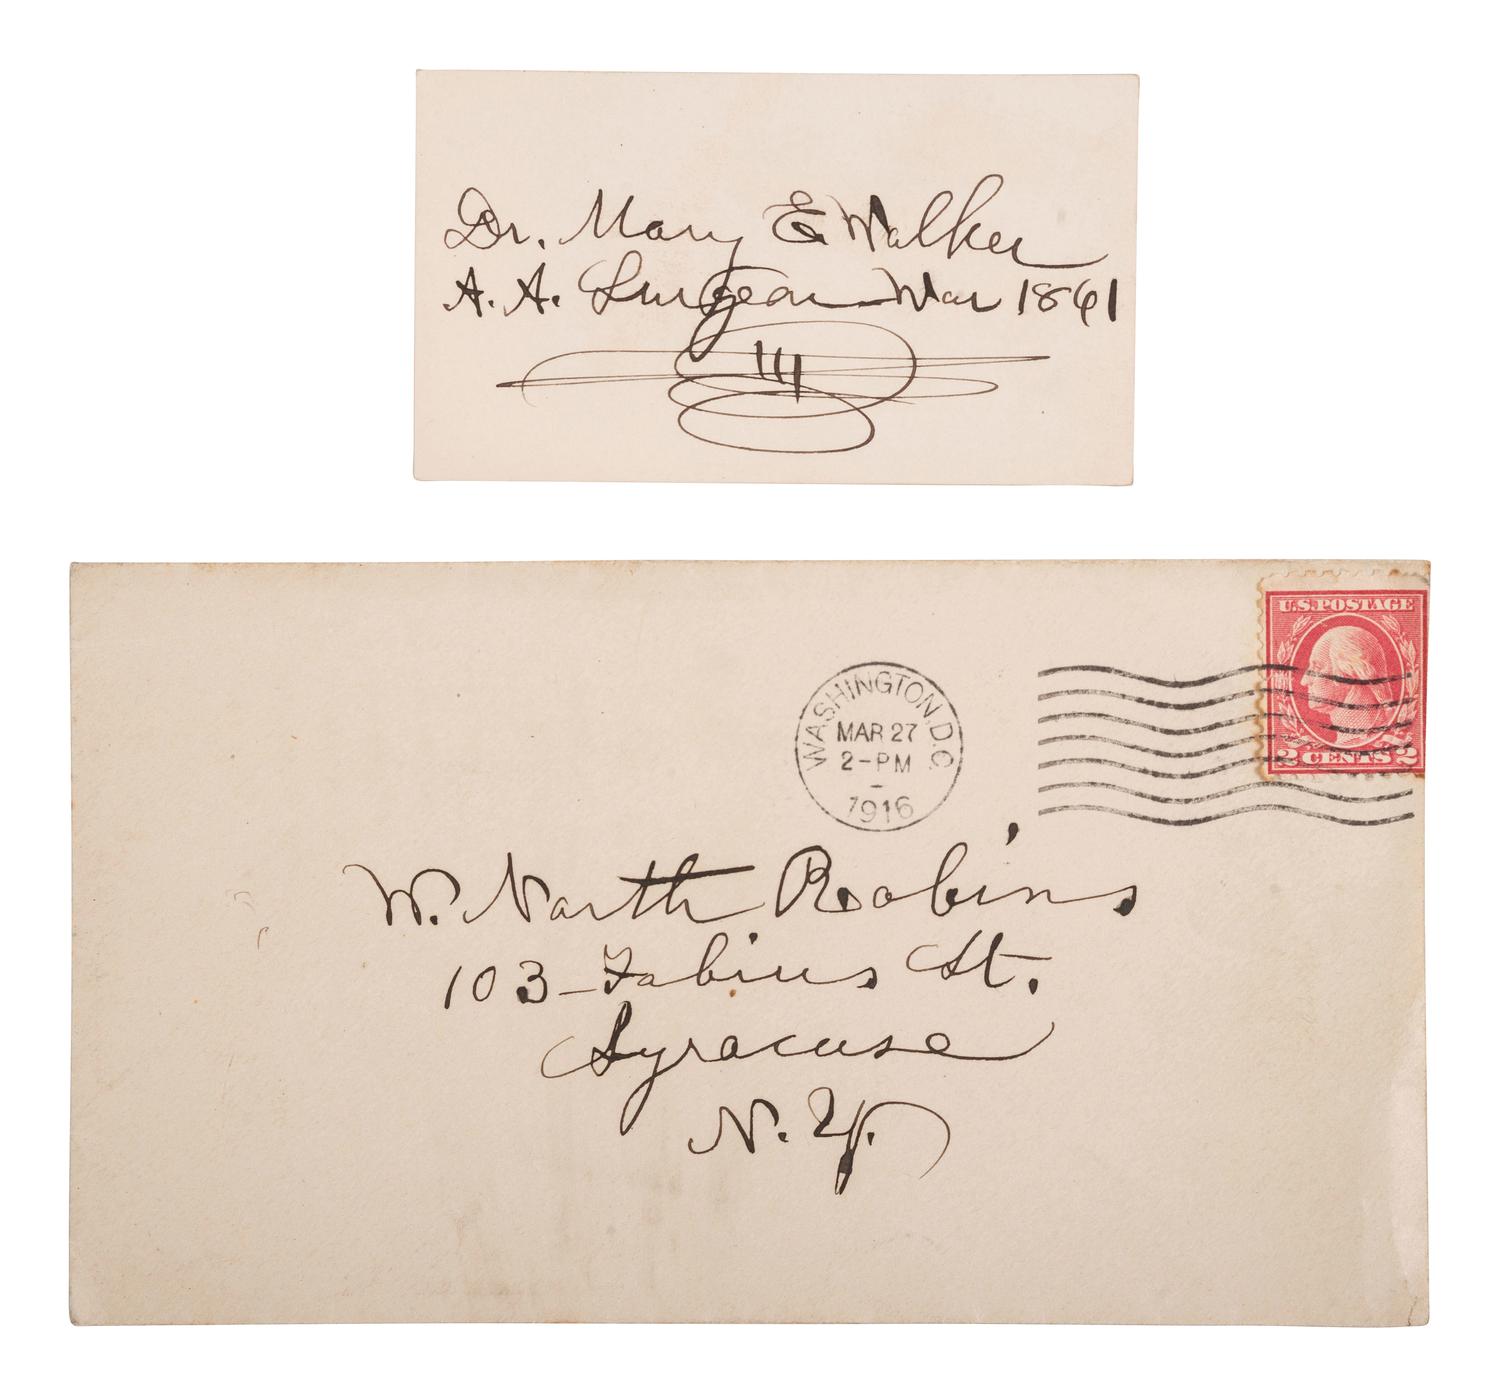 Dr. Mary E Walker
A. A. Surgeon – War 1861
U.S. POSTAGE
2 CENTS 2
WASHINGTON, D.C.
MAR 27
2-PM
1916
W. North Robins
103 – Fabius St.
Syracuse
N. Y.